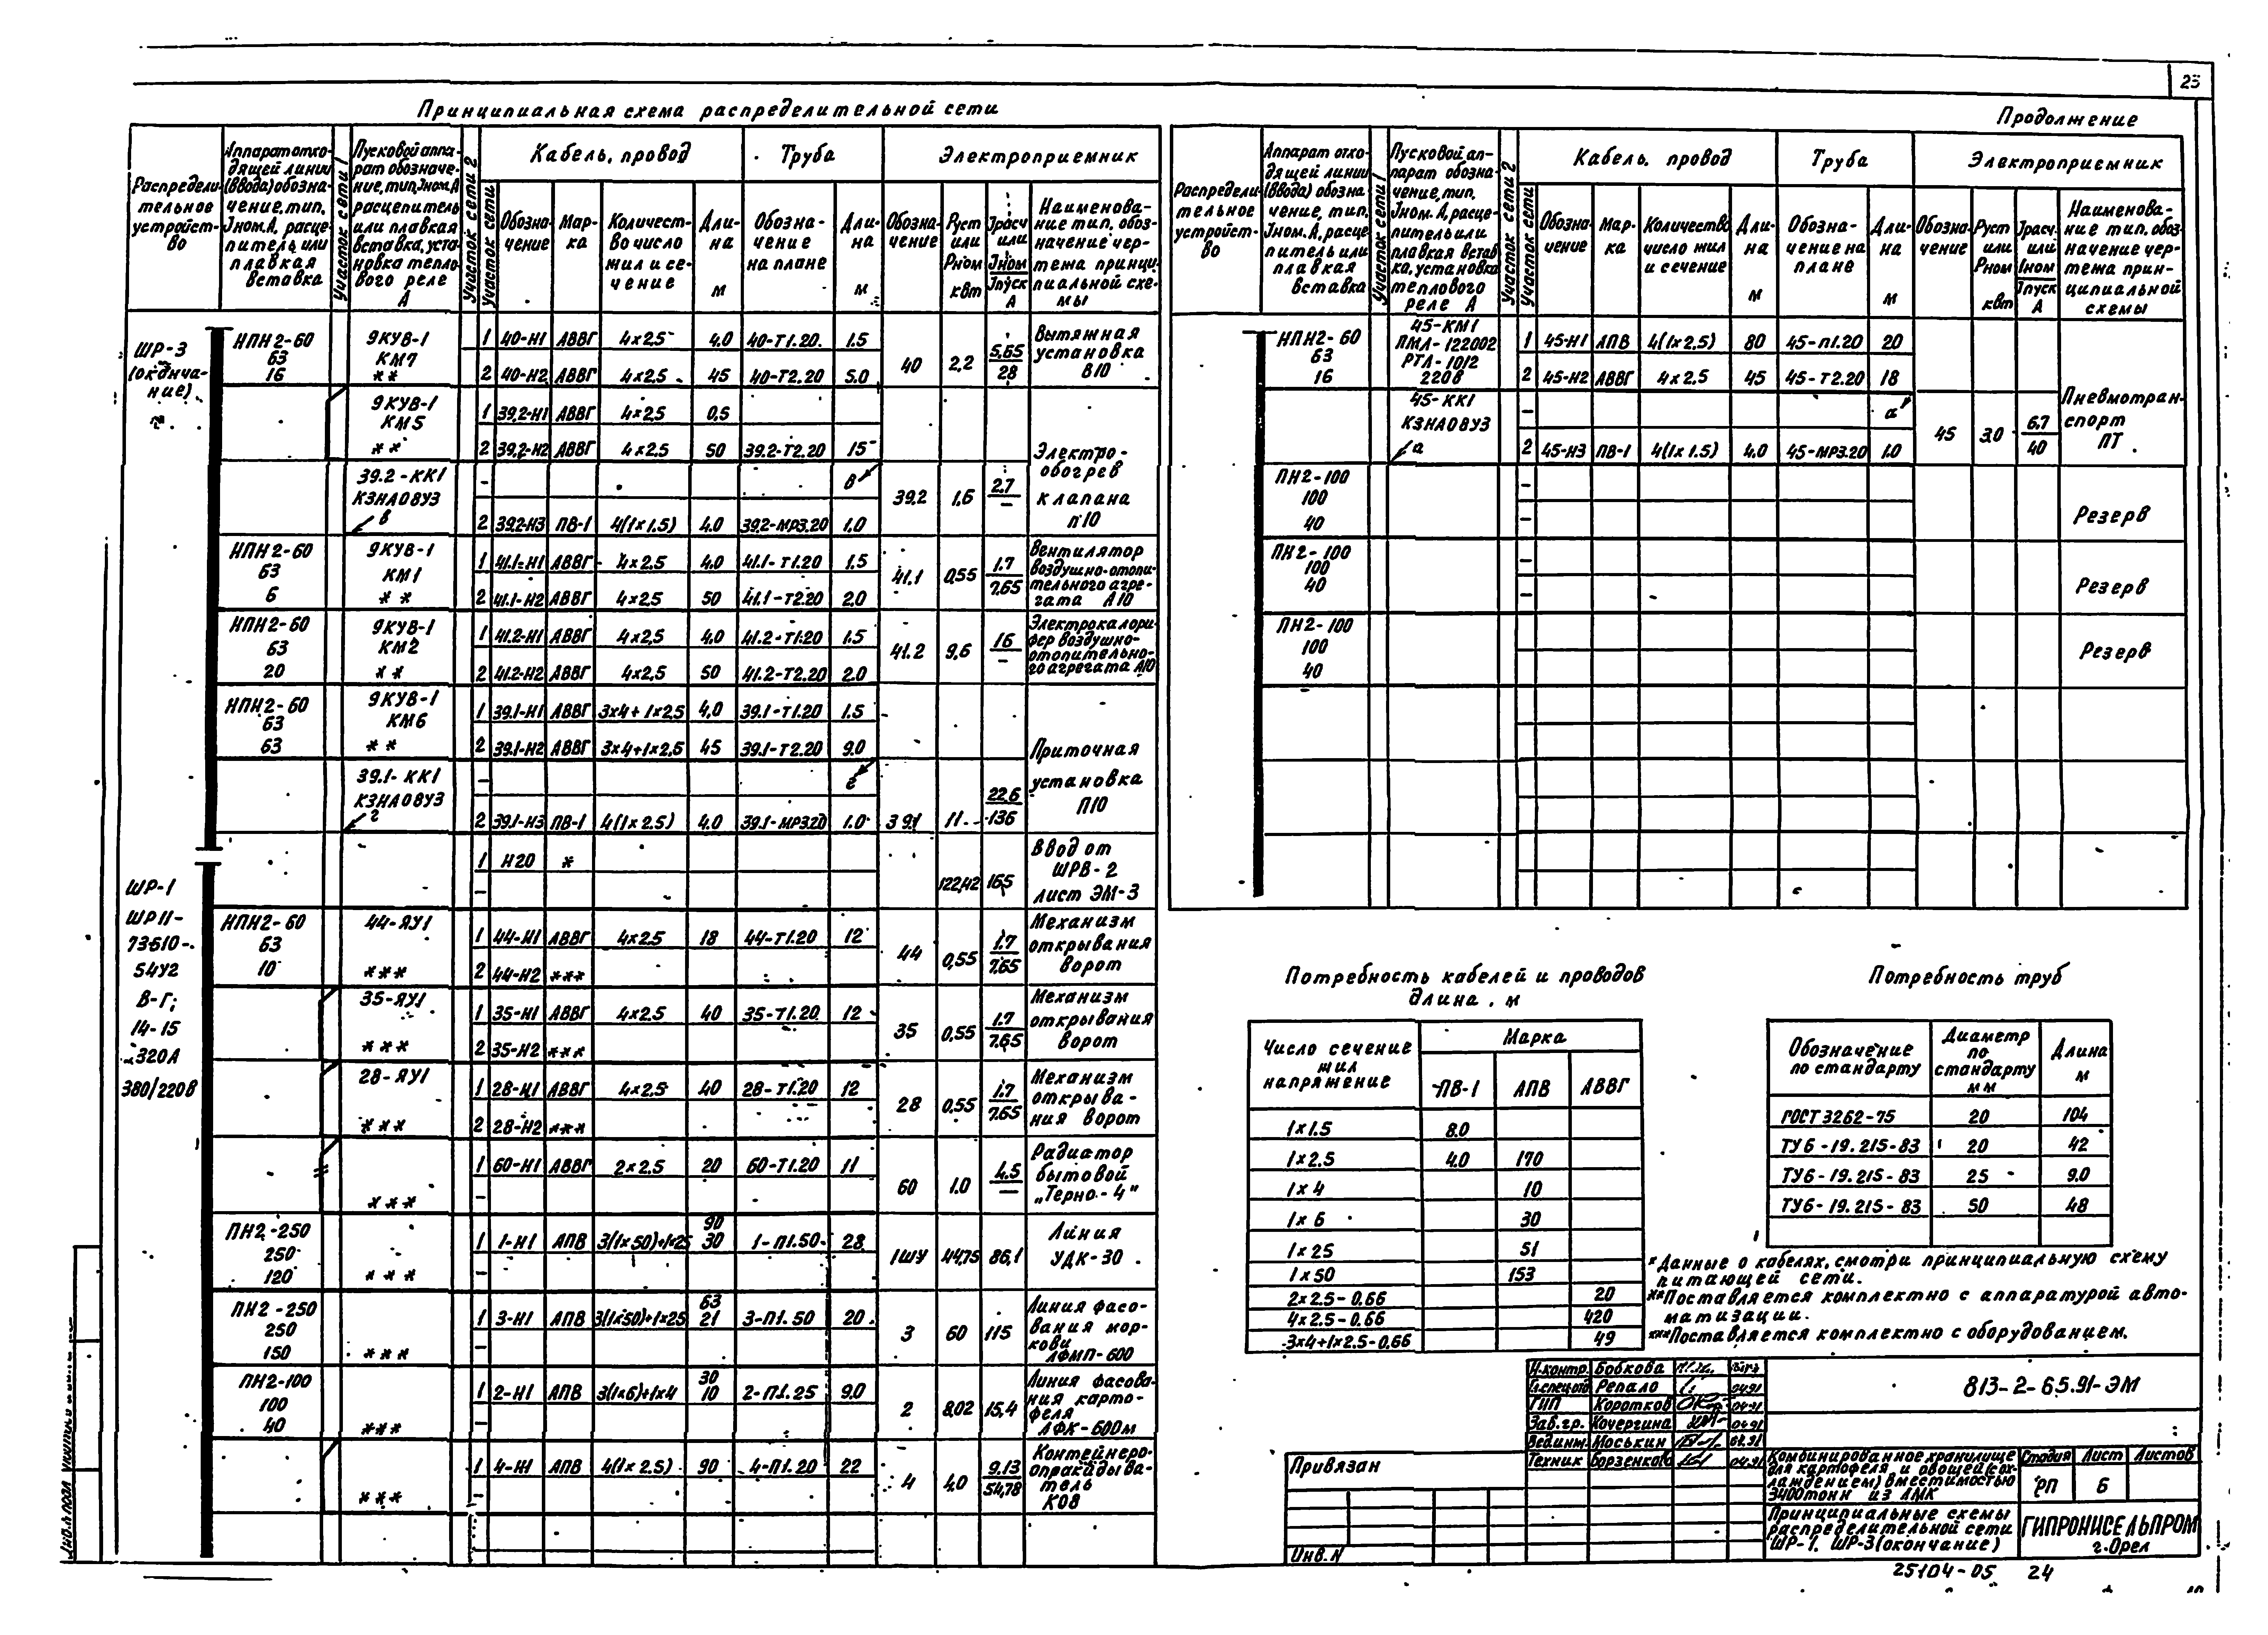 25
Принципиальная схема распределительной сети
Продолжение
Распредели-
тельное
устройст-
во
Аппарат отхо-
дящей линии
(ввода) обозна-
чение, тип.
Iном.А, расце-
питель или
плавкая
вставка
Участок сети 1
Пусковой аппа-
рат обозначе-
ние, тип, Iном.А
расцепитель
или плавкая
вставка, уста-
новка тепло-
вого реле
А
Участок сети 2
Кабель, провод
Труба
Электроприемник
Участок сети
Обозна-
чение
Мар-
ка
Количест-
во число
жил и се-
чение
Дли-
на
м
Обозна-
чение
на плане
Дли-
на
м
Обозна-
чение
Руст
или
Рном
квт
Iрасч
или
Iном
Iпуск
А
Наименова-
ние тип. обоз-
начение чер-
тежа принци-
пиальной схе-
мы
ШР-3
(оконча-
ние)
НПН2-60
63
16
9КУВ-1
КМ7
**
1 40-Н1 АВВГ 4×2,5 4,0 40-Т1.20. 1.5
2 40-Н2 АВВГ 4×2,5 45 40-Т2.20 5.0
40 2,2 5,65
28
Вытяжная
установка
В10
9КУВ-1
КМ5
**
1 39.2-Н1 АВВГ 4×2,5 0,5
2 39.2-Н2 АВВГ 4×2,5 50 39.2-Т2.20 15
39.2-КК1
КЗНА08У3
в
– в
2 39.2-Н3 ПВ-1 4(1×1.5) 4.0 39.2-МР3.20 1.0
39.2 1.6 2.7
–
Электро-
обогрев
клапана
П10
НПН2-60
63
6
9КУВ-1
КМ1
**
1 41.1-Н1 АВВГ 4×2,5 4.0 41.1-Т1.20 1.5
2 41.1-Н2 АВВГ 4×2,5 50 41.1-Т2.20 2.0
41.1 0,55 1.7
7.65
Вентилятор
воздушно-отопи-
тельного агре-
гата А10
НПН2-60
63
20
9КУВ-1
КМ2
**
1 41.2-Н1 АВВГ 4×2,5 4.0 41.2-Т1.20 1.5
2 41.2-Н2 АВВГ 4×2,5 50 41.2-Т2.20 2.0
41.2 9,6 16
–
Электрокалори-
фер воздушно-
отопительно-
го агрегата А10
НПН2-60
63
63
9КУВ-1
КМ6
**
1 39.1-Н1 АВВГ 3×4+1×2,5 4,0 39.1-Т1.20 1.5
2 39.1-Н2 АВВГ 3×4+1×2,5 45 39.1-Т2.20 9.0
39.1-КК1
КЗНА08У3
г
– г
2 39.1-Н3 ПВ-1 4(1×2.5) 4.0 39.1-МР3.20 1.0
39.1 11 22,6
136
Приточная
установка
П10
ШР-1
ШР11-
73510-
54У2
В-Г;
14-15
320А
380/220В
1 Н20 *
–
122,42 165
Ввод от
ШРВ-2
лист ЭМ-3
НПН2-60
63
10
44-ЯУ1
***
1 44-Н1 АВВГ 4×2.5 18 44-Т1.20 12
2 44-Н2 ***
44 0,55 1.7
7.65
Механизм
открывания
ворот
35-ЯУ1
***
1 35-Н1 АВВГ 4×2.5 40 35-Т1.20 12
2 35-Н2 ***
35 0,55 1.7
7.65
Механизм
открывания
ворот
28-ЯУ1
***
1 28-Н1 АВВГ 4×2.5 40 28-Т1.20 12
2 28-Н2 ***
28 0,55 1.7
7.65
Механизм
открыва-
ния ворот
***
1 60-Н1 АВВГ 2×2.5 20 60-Т1.20 11
–
60 1.0 4.5
–
Радиатор
бытовой
„Термо-4"
ПН2-250
250
120
***
90
1 1-Н1 АПВ 3(1×50)+1×25 30 1-П1.50 28
–
1ШУ 44,75 86,1
Линия
УДК-30
ПН2-250
250
150
***
63
1 3-Н1 АПВ 3(1×50)+1×25 21 3-П1.50 20
–
3 60 115
Линия фасо-
вания мор-
кови
ЛФМП-600
ПН2-100
100
40
***
30
1 2-Н1 АПВ 3(1×6)+1×4 10 2-П1.25 9.0
–
2 8,02 15,4
Линия фасова-
ния карто-
феля
ЛФК-600м
***
1 4-Н1 АПВ 4(1×2.5) 90 4-П1.20 22
–
4 4,0 9.13
54,78
Контейнеро-
опрокидыва-
тель
КОВ
Распредели-
тельное
устройст-
во
Аппарат отхо-
дящей линии
(ввода) обозна
чение, тип.
Iном.А, расце-
питель или
плавкая
вставка
Участок сети 1
Пусковой ап-
парат обозна-
чение, тип.
Iном.А, расце-
питель или
плавкая встав-
ка, установка
теплового
реле А
Участок сети 2
Кабель, провод
Труба
Электроприемник
Участок сети
Обозна-
чение
Мар-
ка
Количество
число жил
и сечение
Дли-
на
м
Обозна-
чение на
плане
Дли-
на
м
Обозна-
чение
Руст
или
Рном
квт
Iрасч.
или
Iном
Iпуск
А
Наименова-
ние тип. обоз-
начение чер-
тежа прин-
ципиальной
схемы
НПН2-60
63
16
45-КМ1
ПМЛ-122002
РТЛ-1012
220В
1 45-Н1 АПВ 4(1×2,5) 80 45-П1.20 20
2 45-Н2 АВВГ 4×2,5 45 45-Т2.20 18
45-КК1
КЗНА08У3
а
– а
2 45-Н3 ПВ-1 4(1×1.5) 4,0 45-МР3.20 1.0
45 3.0 6.7
40
Пневмотран-
спорт
ПТ
ПН2-100
100
40
–
–
Резерв
ПН2-100
100
40
–
–
Резерв
ПН2-100
100
40
Резерв
Потребность кабелей и проводов
длина, м
Число сечение
жил
напряжение
Марка
ПВ-1 АПВ АВВГ
1×1.5 8.0
1×2.5 4.0 170
1×4 10
1×6 30
1×25 51
1×50 153
2×2.5-0.66 20
4×2.5-0.66 420
3×4+1×2.5-0.66 49
Потребность труб
Обозначение
по стандарту
Диаметр
по
стандарту
мм
Длина
м
ГОСТ 3262-75 20 104
ТУ6-19.215-83 20 42
ТУ6-19.215-83 25 9.0
ТУ6-19.215-83 50 48
* Данные о кабелях, смотри принципиальную схему
питающей сети.
** Поставляется комплектно с аппаратурой авто-
матизации.
*** Поставляется комплектно с оборудованием.
Н.контр. Бобкова
Гл.спец.отд Репало 04.91
ГИП Коротков 04.91
Зав.гр. Кочергина 04.91
Вед.инж. Моськин 04.91
Техник Борзенкова 04.91
813-2-65.91-ЭМ
Комбинированное хранилище
для картофеля и овощей (с ох-
лаждением) вместимостью
3400 тонн из ЛМК
Стадия Лист Листов
РП 6
Принципиальные схемы
распределительной сети
ШР-1, ШР-3 (окончание)
ГИПРОНИСЕЛЬПРОМ
г.Орел
Привязан
Инв.N
25104-05 24